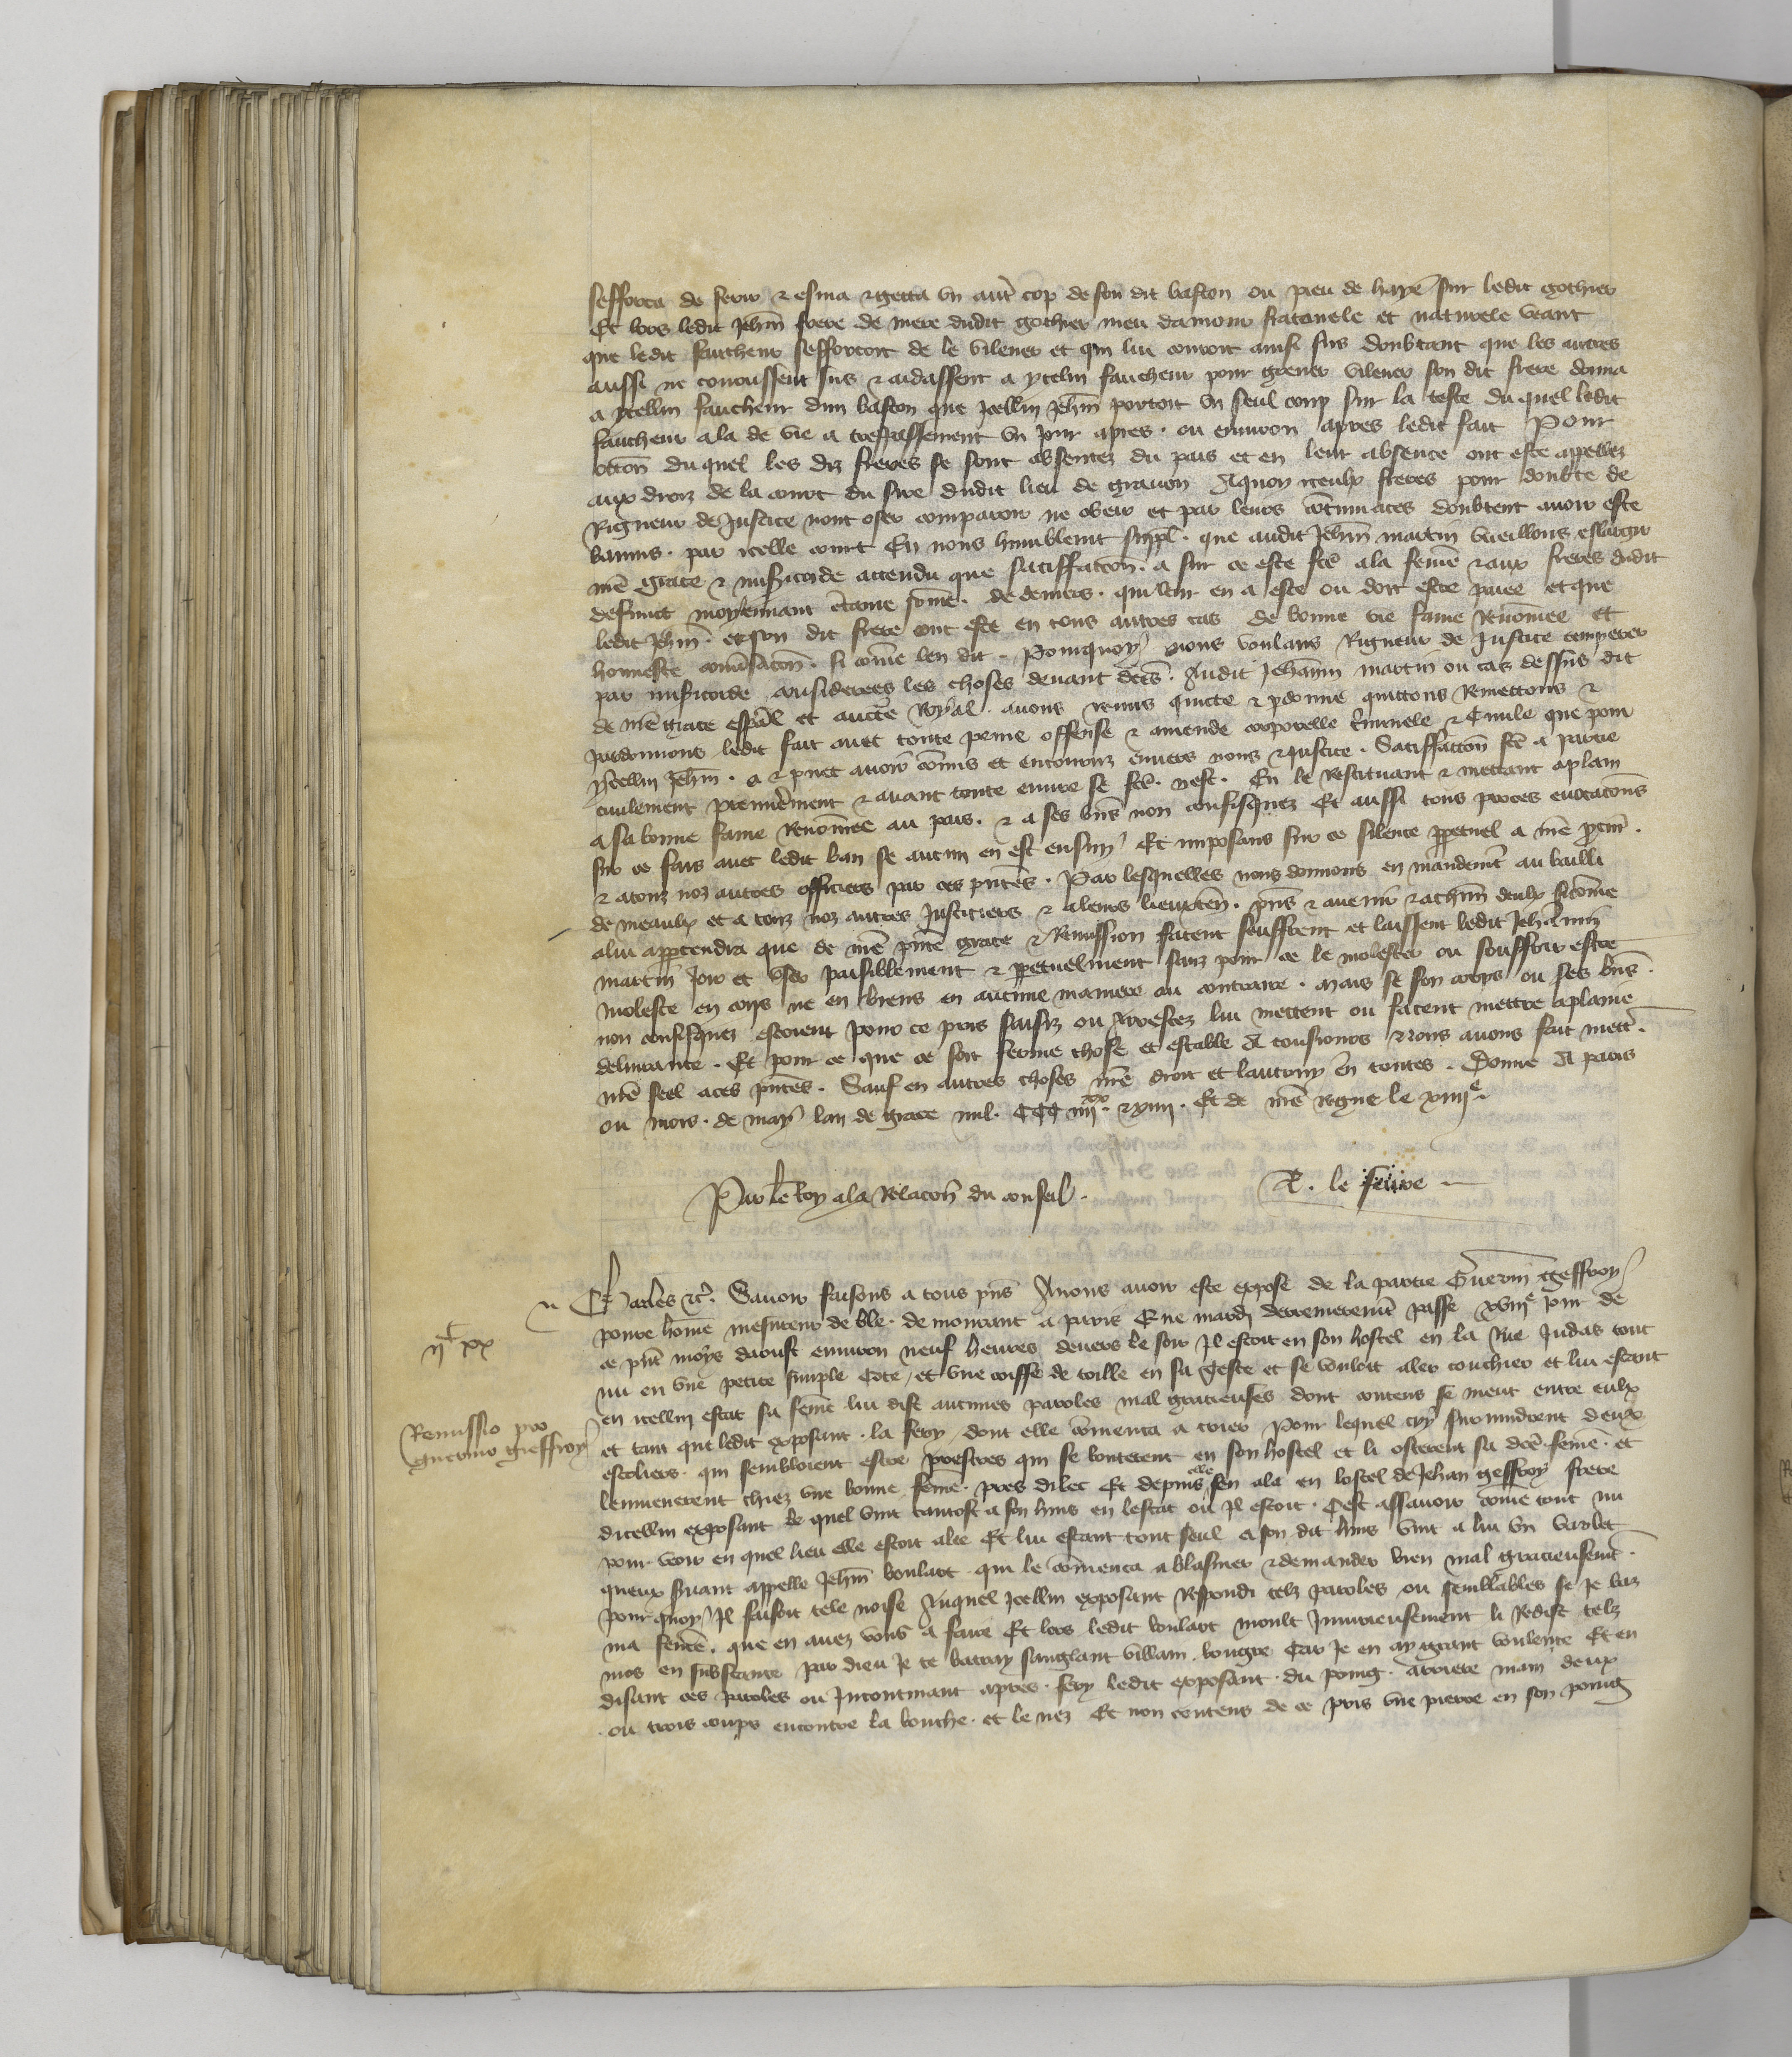 sefforca de ferir & esma & getta vn autre cop de son dit baston ou pieu de haye sur ledit gothier
Et lors ledit Jehan frere de mere dudit gothier meu damour fraternele et naturele veant
que ledit faucheur sefforcoit de le vilener et qui lui couroit ainsi sus doubtant que les autres
aussi ne courussent sus & aidassent a ycelui faucheur pour grever vilener son dit frere donna
a ycellui faucheur dun baston que Jcellui Jehan portoit vn seul coup sur la teste du quel ledit
faucheur ala de vie a trespassement vn jour apres . ou environ apres ledit fait Pour
du quel les diz freres se sont absentez du pais et en leur absence ont este appellez
aux droiz de la court du sire dudit lieu de gravon Aquoy iceulx freres pour doubte de
Rigueur de Justice nont ose comparoir ne obeir et par leurs contumaces doubtent avoir este
bannis . par icelle court En nous humblement suppl. que audit Jehan martin vueillons eslargir
nre grace & misericorde attendu que satisffacon . a sur ce este fce ala femme & aux freres dudit
deffunct moyennant certaine somme . de deniers . qui leur en a este ou doit estre paiee et que
ledit Jehan . et son dit frere ont este en tous autres cas de bonne vie fame Renommee et
honneste conversacon . si comme len dit . Pourquoy nous voulans Rigueur de Justice temperer
par misericorde considerees les choses devant dces . Audit Jehannin martin ou cas dessus dit
de nre grace espal et aucte Royal . avons remis quicte & pdonne quittons Remettons &
pardonnons ledit fait avec toute peine offense & amende corporelle criminele & Civile que pour
ycellui Jehan . a & puet avoir commis et encouruz envers nous & justice . Satisffacon fce a partie
civilement premierement & avant toute euvre se fce . nest . En le Restituant & mettant aplain
a sa bonne fame Renommee au pais . & a ses biens non confisquez Et aussi tous proces evocacons
sur ce fais avec ledit ban se aucun en est ensuy Et imposans sur ce silence ppetuel a nre procureur .
& atouz noz autres officiers par ces pntes . Par lesquelles nous donnons en mandement au bailli
de meaulx et a touz noz autres Justiciers & aleurs lieuxten. pns & avenir & achun deulx sicomme
alui apptendra que de nre pnte grace & Remission facent seuffrent et laissent ledit Jehannin
martin Joir et vser paisiblement & ppetuelment sanz pour ce le molester ou souffrir estre
moleste en corps ne en biens en aucune maniere au contraire . Mais se son corps ou ses biens .
non confisquez estoient pour ce pris saisiz ou Arrestez lui mettent ou facent mettre aplaine
delivrance . Et pour ce que ce soit ferme chose et estable A tousjours Nous avons fait mettre .
nre seel aces pntes . Sauf en autres choses nre droit et lautruy en toutes . Donne A paris
ou mois . de may lan de grace mil . CCC iiijxx . & xiiij . Et de nre regne le xiiije .
Par le Roy ala Relacon du conseil . R . le fevre
Charles &c. Savoir faisons a tous pns Anous avoir este expose de la partie Guerin geffroy
povre homme mesureur de ble . demourant a paris Que mardi derrenierement passe xviije jour de
ijc xx
ce pnt moys daoust environ neuf heures devers le soir Jl estoit en son hostel en la Rue Judas tout
nu en vne petite simple cote / et vne coiffe de toille en sa teste et se vouloit aler couchier et lui estant
en icellui estat sa femme lui dist aucunes paroles mal gracieuses dont contens se meut entre eulx
Remissio pro
guerino gieffroy
et tant que ledit exposant . la fery / dont elle commenca a crier Pour lequel cry survindrent deux
escoliers . qui sembloient estre prestres qui se bouterent en son hostel et li osterent sa dce . femme . et
lenmenerent chiez vne bonne femme . pres dilec Et depuis elle sen ala en lostel de Jehan geffroy frere
dicellui exposant le quel vint tantost a son huis en lestat ou Jl estoit . Cest assavoir comme tout nu
pour veoir en quel lieu elle estoit alee Et lui estant tout seul a son dit huis vint a lui vn varlet
queux suiant appelle Jehan boulart . qui le commenca a blasmer & demander bien mal gracieusement .
pour quoy Jl faisoit tele noise Auquel Jcellui exposant Respondi telz paroles ou semblables se Je baz
ma femme . que en avez vous a faire Et lors ledit boulart moult Jnjurieusement li Redist telz
mos en substance par dieu Je te batray sanglant villain . bougre Car Je en ay grant voulente Et en
disant ces paroles ou Jncontinant apres . fery ledit exposant . du poing . arriere main deux
. ou trois coups encontre la bouche . et le nez Et non contens de ce pris vne pierre en son poing